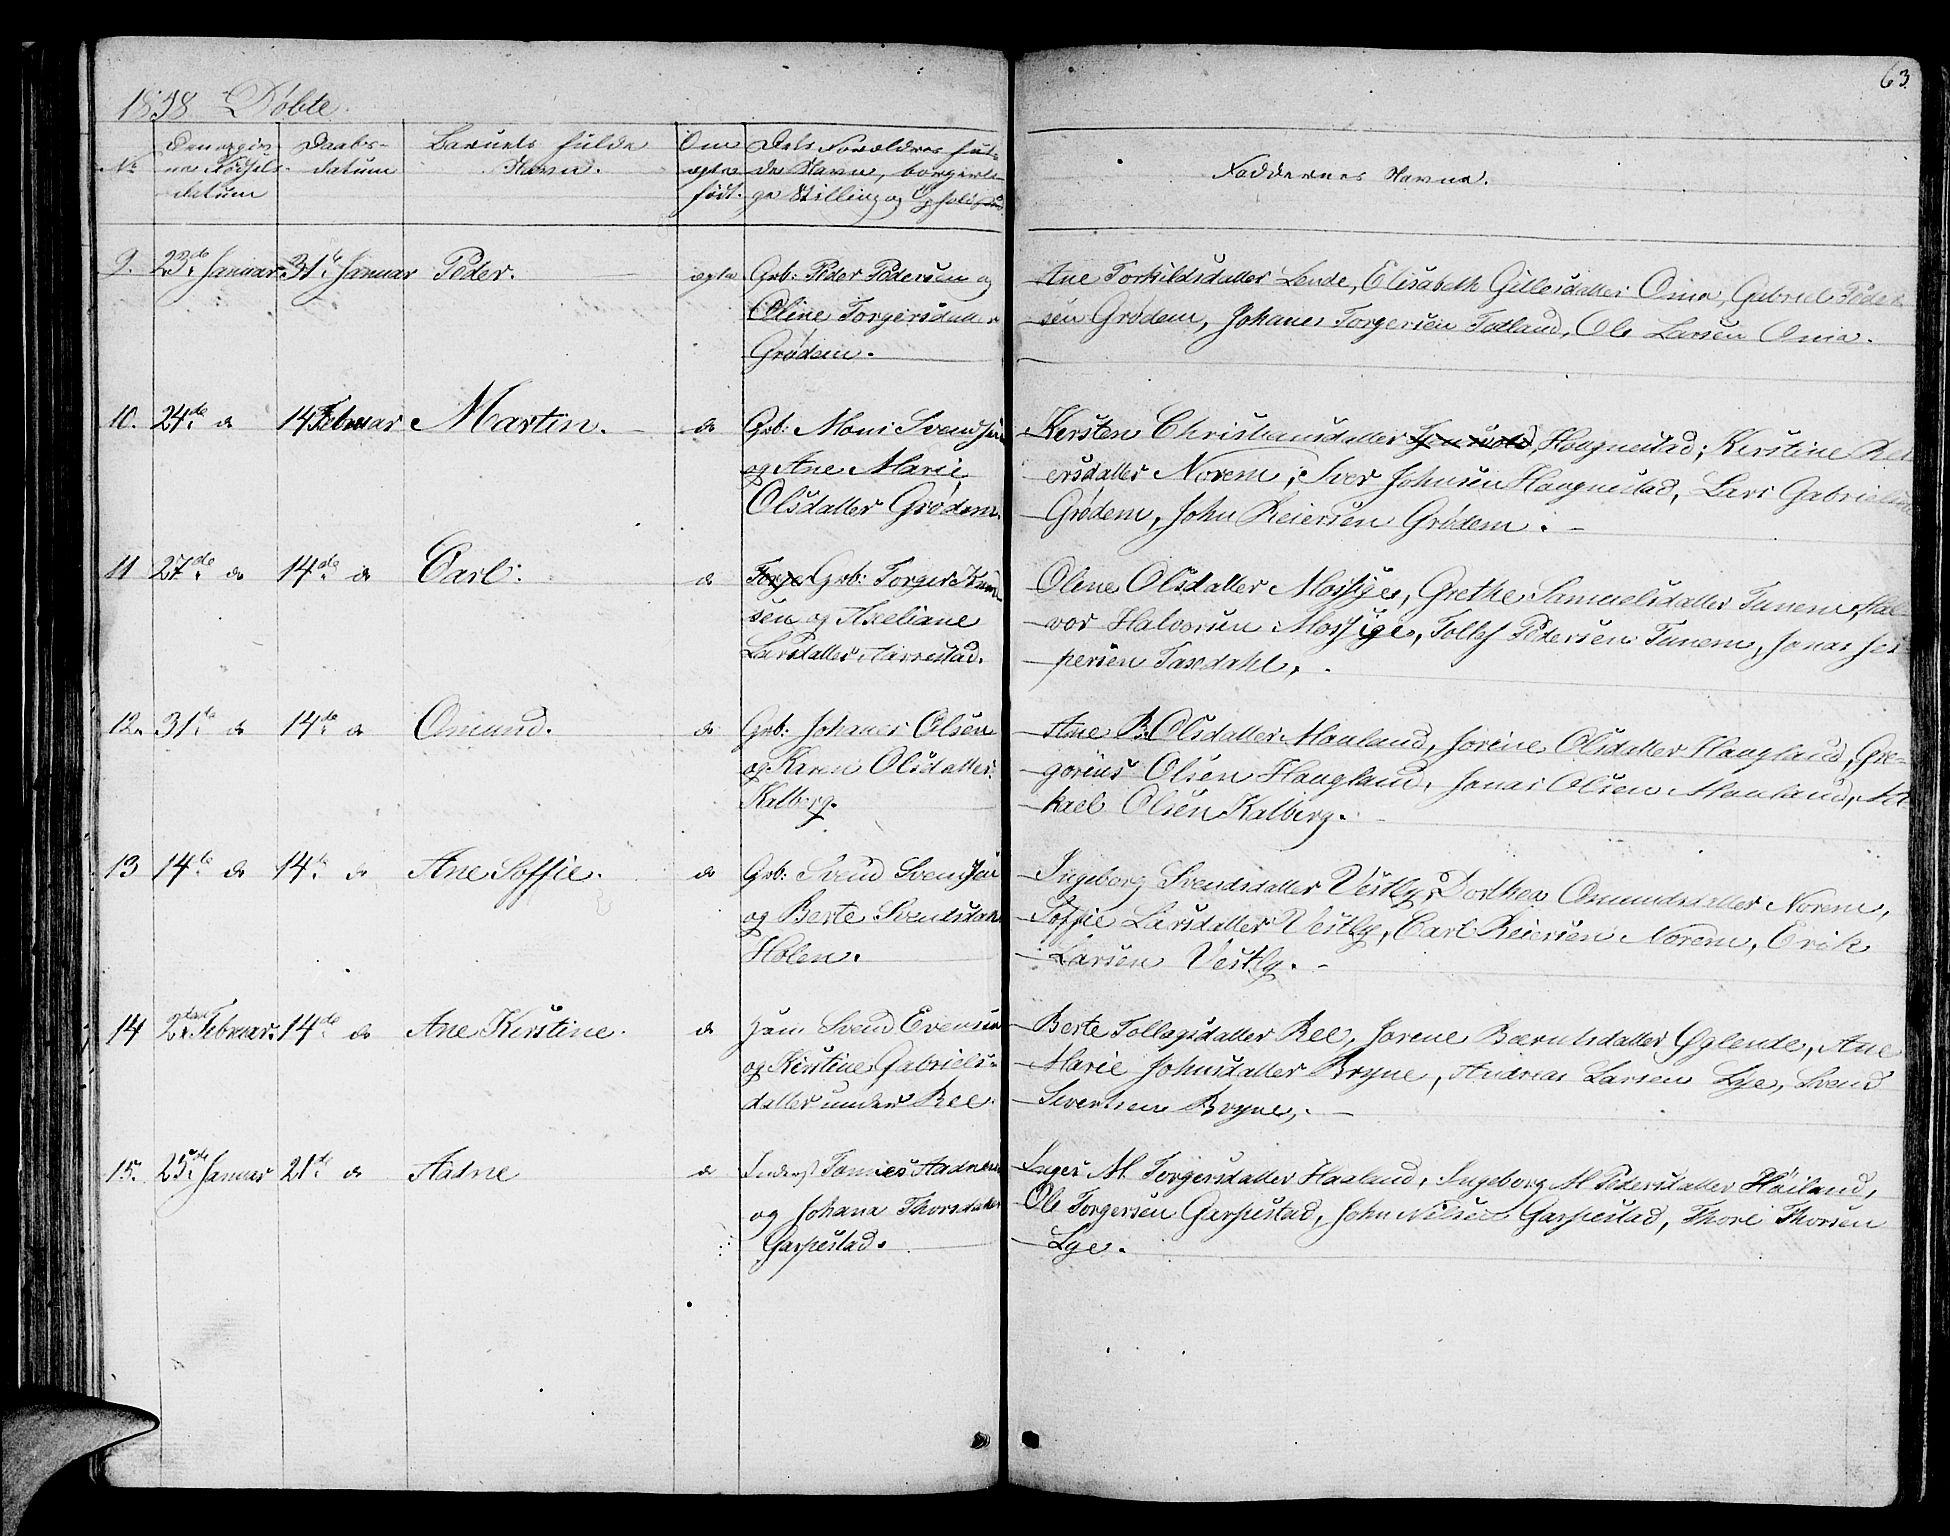 63
1858 Döbte.
No
Den nygivne Fødsels-
datum
Daabs-
datum
Barnets fulde
Navn.
Om
ægte
født.
Dets Forældres ful-
de Navn, borgerli-
ge Stilling og Opholdssted
Faddernes Navne.
9. 23de Januar. 31te Januar Peder. ægte Grb: Peder Pedersen og
Oline Torgersdatter
Grødem.
Ane Torkildsdatter Lende, Elisabeth Gillesdatter Oma, Gabriel Peder-
sen Grødem, Johanes Torgersen Totland, Ole Larsen Oma.
10. 24de do 14 Februar Martin. do Grb: Moni Svendsen
og Ane Marie
Olsdatter Grødem.
Kersten Christiansdatter Haugnestad; Kirstine Rei-
ersdatter Norem; Iver Johnsen Haugnestad, Lars Gabrielsen
Grødem, John Reiersen Grødem.
11 27de do 14de do Carl. do Torger Grb: Torger Knud-
sen og Axeliane
Larsdatter Aarrestad.
Olene Olsdatter Mossige, Grethe Samuelsdatter Tunem, Hal-
vor Halvorsen Mossige, Tollef Pedersen Tunem, Jonas Jes-
persen Taxdahl.
12. 31te do 14de do Omund. do Grb: Johanes Olsen
og Karen Olsdatter
Kalberg.
Ane B. Olsdatter Mauland, Jorine Olsdatter Haugland, Gre-
gorius Olsen Haugland, Jonas Olsen Mauland, Mi-
kael Olsen Kalberg.
13 14de do 14de do Ane Soffie. do Grb: Svend Svendsen
og Berte Svendsdatr
Holen.
Ingeborg Svendsdatter Vestly, Dorthea Omundsdatter Norem,
Soffie Larsdatter Vestly, Carl Reiersen Norem, Erik
Larsen Vestly.
14 2den Februar. 14de do Ane Kirstine. do Huusm Svend Evensen
og Kirstine Gabriels-
datter under Ree.
Berte Tollagsdatter Ree, Jorene Bærntsdatter Øglende, Ane
Marie Johnsdatter Bryne, Andreas Larsen Lye, Svend
Sivertsen Bryne.
15. 25de Januar 21de do Aadne do Inderst Tønnes Aadnesen
og Johana Thorsdatter
Garpestad.
Inger M Torgersdatter Haaland, Ingeborg M Pedersdatter Höiland,
Ole Torgersen Garpestad, John Nilsen Garpestad, Thore Thorsen
Lye.